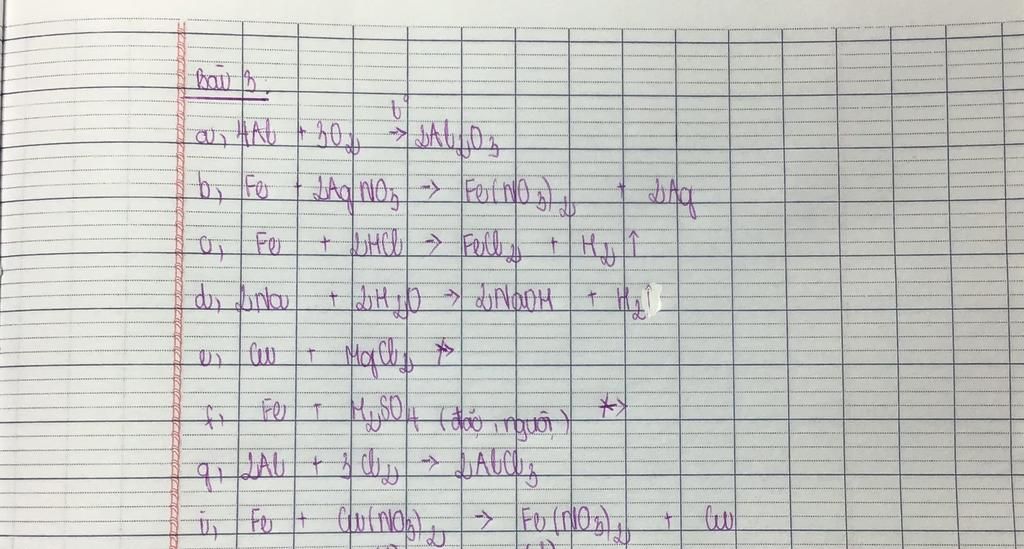 Bài 3:
a, 4Al + 3O₂ t° → 2Al₂O₃
b, Fe + 2AgNO₃ → Fe(NO₃)₂ + 2Ag
c, Fe + 2HCl → FeCl₂ + H₂ ↑
d, 2Na + 2H₂O → 2NaOH + H₂↑
e, Cu + MgCl₂ ↛
f, Fe + H₂SO₄ (đặc, nguội) ↛
g, 2Al + 3Cl₂ → 2AlCl₃
i, Fe + Cu(NO₃)₂ → Fe(NO₃)₂ + Cu